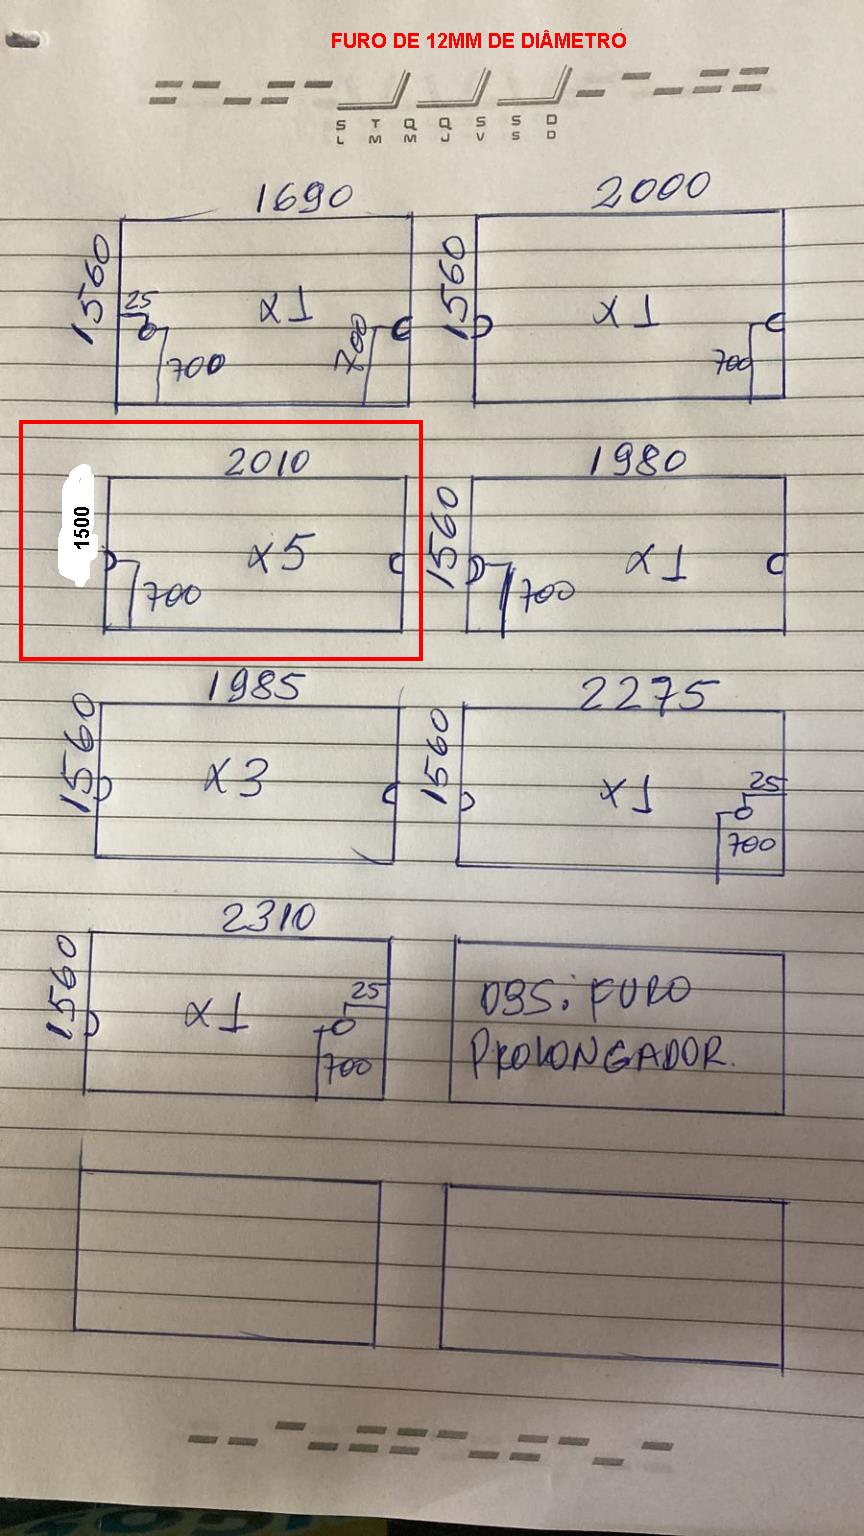 FURO DE 12MM DE DIÂMETRO
S T Q Q S S D
L M M J V S D
1690
1560
25
x1
700
700
2000
1560
x1
700
2010
1500
x5
700
1980
1560
x1
700
1985
1560
x3
2275
1560
x1
25
700
2310
1560
x1
25
700
OBS: FURO
PROLONGADOR.